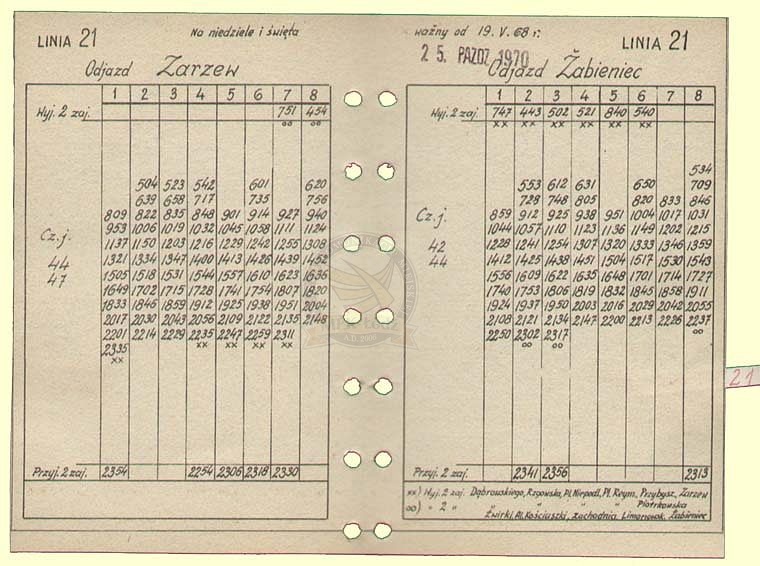 LINIA 21
Na niedziele i święta
Odjazd Zarzew
1 2 3 4 5 6 7 8
Wyj. 2 zaj. 751 454
oo oo
504 523 542 601 620
639 658 717 735 756
809 822 835 848 901 914 927 940
953 1006 1019 1032 1045 1058 1111 1124
1137 1150 1203 1216 1229 1242 1255 1308
1321 1334 1347 1400 1413 1426 1439 1452
1505 1518 1531 1544 1557 1610 1623 1636
1649 1702 1715 1728 1741 1754 1807 1820
1833 1846 1859 1912 1925 1938 1951 2004
2017 2030 2043 2056 2109 2122 2135 2148
2201 2214 2229 2235 2247 2259 2311
xx xx xx xx
2335
xx
Cz. j.
44
47
Przyj. 2 zaj. 2354 2254 2306 2318 2330
ważny od 19. V. 68 r.
LINIA 21
25. PAZDZ 1970
Odjazd Żabieniec
1 2 3 4 5 6 7 8
Wyj. 2 zaj. 747 443 502 521 840 540
xx xx xx xx xx xx
534
553 612 631 650 709
728 748 805 820 833 846
859 912 925 938 951 1004 1017 1031
1044 1057 1110 1123 1136 1149 1202 1215
1228 1241 1254 1307 1320 1333 1346 1359
1412 1425 1438 1451 1504 1517 1530 1543
1556 1609 1622 1635 1648 1701 1714 1727
1740 1753 1806 1819 1832 1845 1858 1911
1924 1937 1950 2003 2016 2029 2042 2055
2108 2121 2134 2147 2200 2213 2226 2237
oo
2250 2302 2317
oo oo
Cz. j.
42
44
Przyj. 2 zaj. 2341 2356 2313
xx) Wyj. 2 zaj. Dąbrowskiego, Rzgowska, Pl. Niepodl., Pl. Reym., Przybysz., Zarzew
oo) " 2 " " " " Piotrkowska
Żwirki, Al. Kościuszki, Zachodnia, Limanowsk., Żabieniec
21